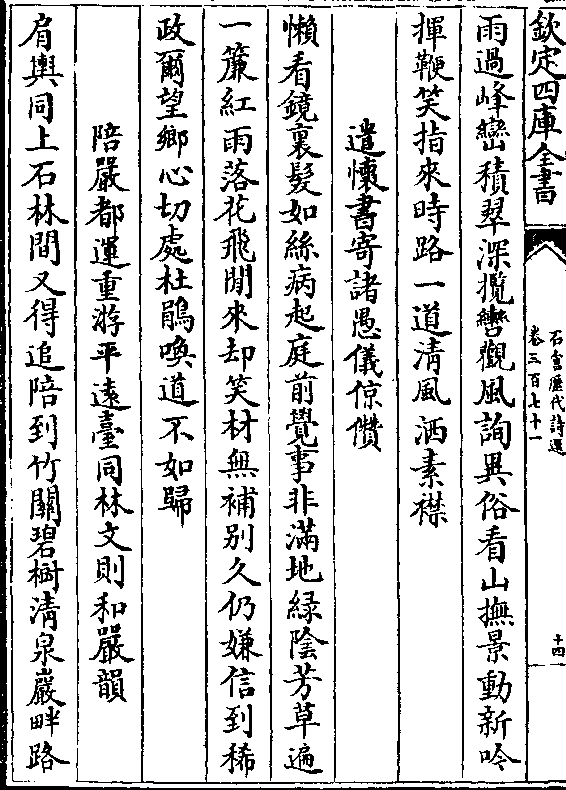 欽定四庫全書
石倉歷代詩選
卷三百七十一
十四
雨過峰巒積翠深攬轡觀風詢異俗看山撫景動新吟
揮鞭笑指來時路一道清風洒素襟
遣懷書寄諸愚儀倞儹
懶看鏡裏髮如絲病起庭前覺事非滿地緑陰芳草遍
一簾紅雨落花飛閒來却笑材無補别久仍嫌信到稀
政爾望鄉心切處杜鵑喚道不如歸
陪嚴都運重游平遠臺同林文則和嚴韻
肩輿同上石林間又得追陪到竹關碧樹清泉巖畔路